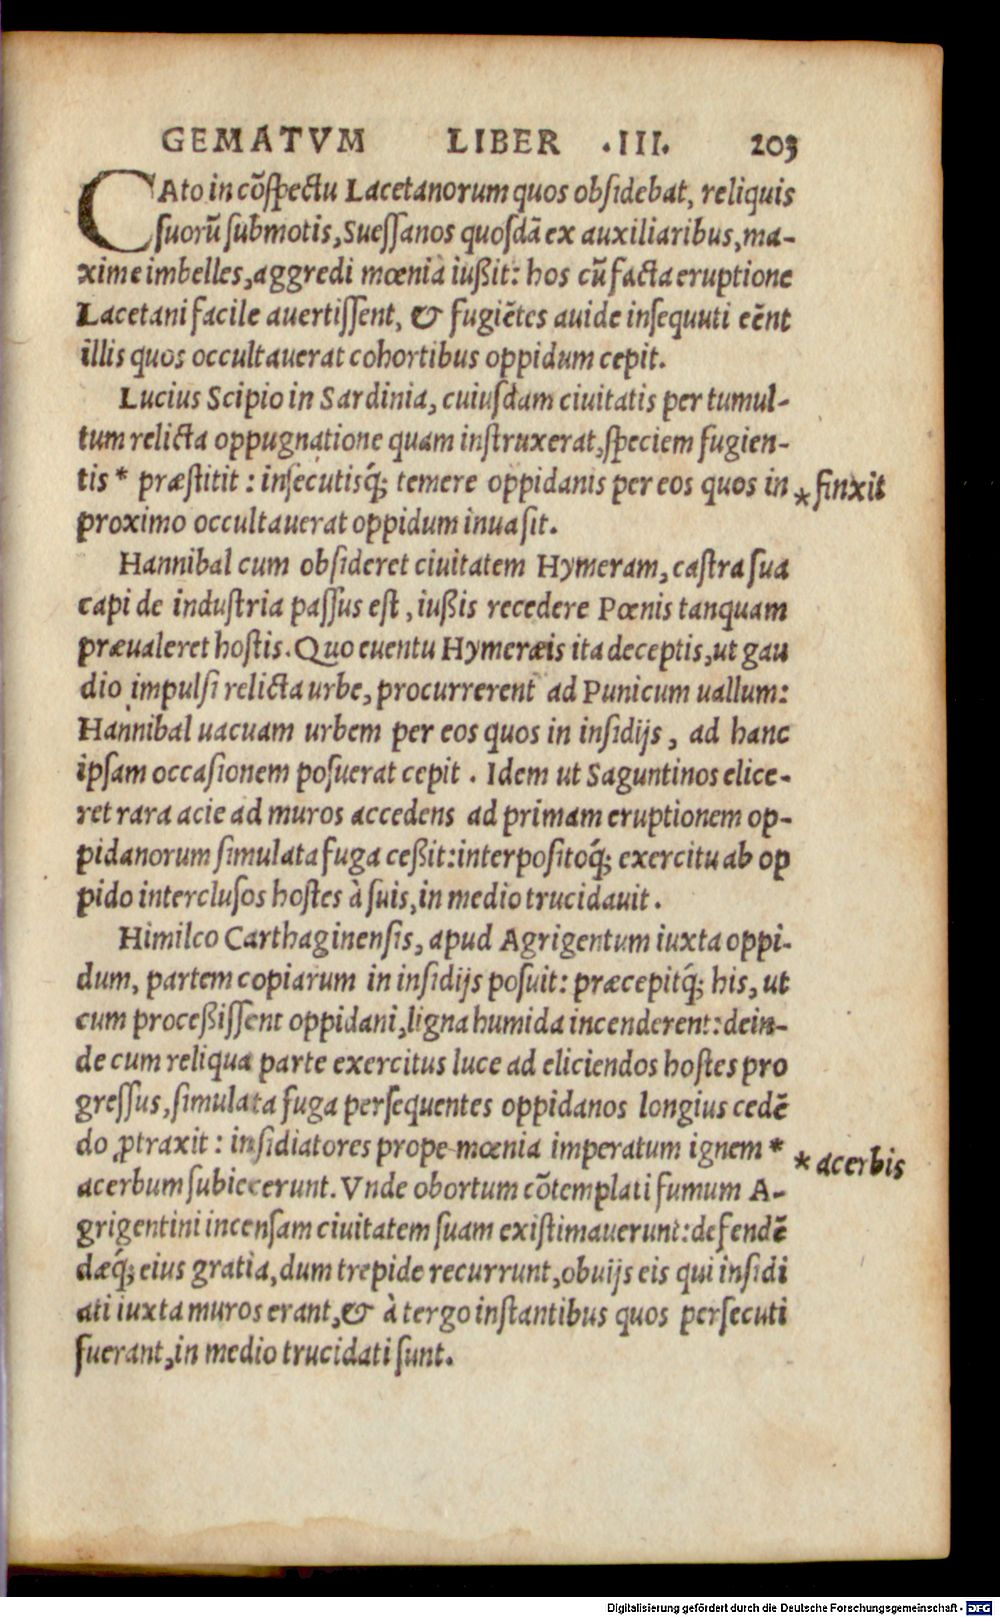 GEMATVM LIBER .III. 203
CAto in cõſpectu Lacetanorum quos obſidebat, reliquis
ſuorũ ſubmotis, Sueſſanos quoſdã ex auxiliaribus, ma-
xime imbelles, aggredi mœnia iußit: hos cũ facta eruptione
Lacetani facile auertiſſent, & fugiẽtes auide inſequuti eẽnt
illis quos occultauerat cohortibus oppidum cepit.
Lucius Scipio in Sardinia, cuiuſdam ciuitatis per tumul-
tum relicta oppugnatione quam inſtruxerat, ſpeciem fugien-
tis * præſtitit : inſecutisq́; temere oppidanis per eos quos in
* finxit
proximo occultauerat oppidum inuaſit.
Hannibal cum obſideret ciuitatem Hymeram, caſtra ſua
capi de induſtria paſſus eſt, iußis recedere Pœnis tanquam
præualeret hoſtis. Quo euentu Hymeræis ita deceptis, ut gau
dio impulſi relicta urbe, procurrerent ad Punicum uallum:
Hannibal uacuam urbem per eos quos in inſidijs, ad hanc
ipſam occaſionem poſuerat cepit. Idem ut Saguntinos elice-
ret rara acie ad muros accedens ad primam eruptionem op-
pidanorum ſimulata fuga ceßit: interpoſitoq́; exercitu ab op
pido interclusos hoſtes à ſuis, in medio trucidauit.
Himilco Carthaginenſis, apud Agrigentum iuxta oppi-
dum, partem copiarum in inſidijs poſuit: præcepitq́; his, ut
cum proceßiſſent oppidani, ligna humida incenderent: dein-
de cum reliqua parte exercitus luce ad eliciendos hoſtes pro
greſſus, ſimulata fuga perſequentes oppidanos longius cedẽ
do ꝓtraxit : inſidiatores prope mœnia imperatum ignem *
* acerbis
acerbum ſubiecerunt. Vnde obortum cõtemplati fumum A-
grigentini incenſam ciuitatem ſuam exiſtimauerunt: defendẽ
dæq́; eius gratia, dum trepide recurrunt, obuijs eis qui inſidi
ati iuxta muros erant, & à tergo inſtantibus quos perſecuti
fuerant, in medio trucidati ſunt.
Digitalisierung gefördert durch die Deutsche Forschungsgemeinschaft - DFG